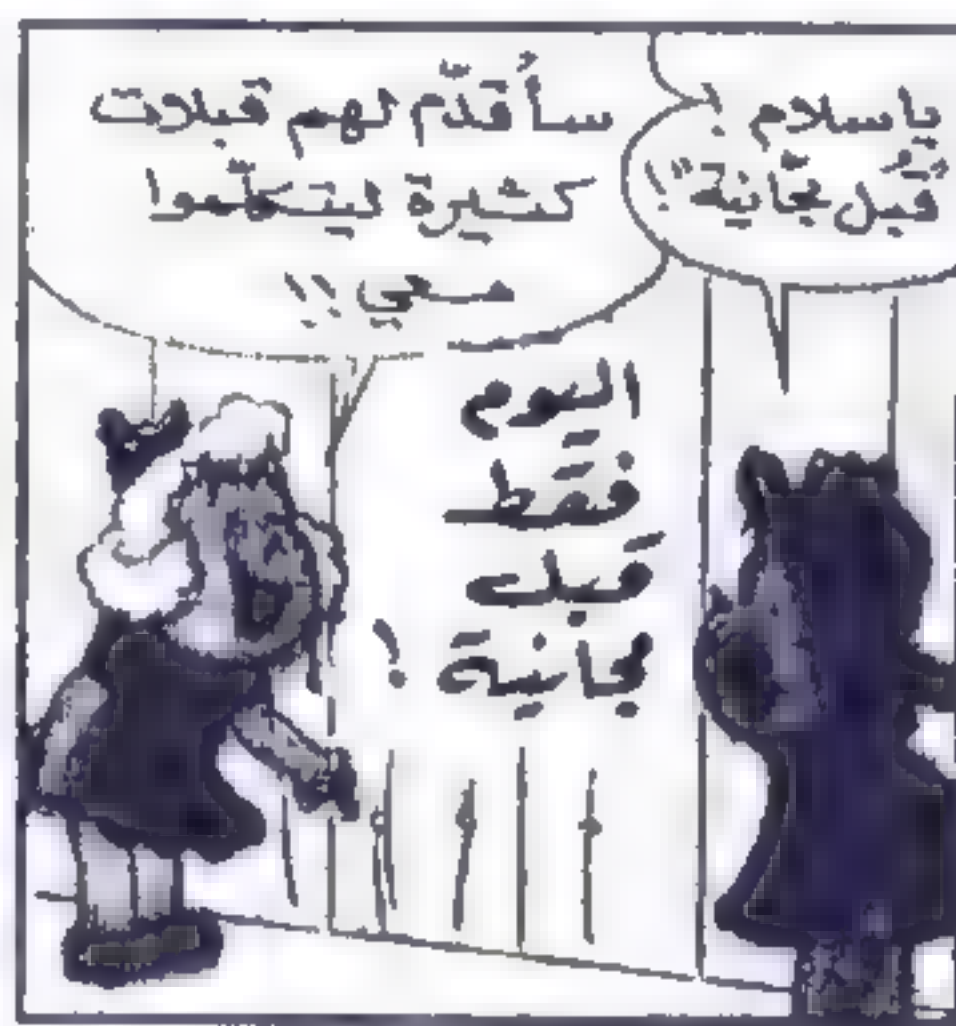 ياسلام !
"قُبل مجّانية" !
سأُقدّم لهم قبلات
كثيرة ليتكلّموا
معي !!
اليوم
فقط
قبل
مجانية !